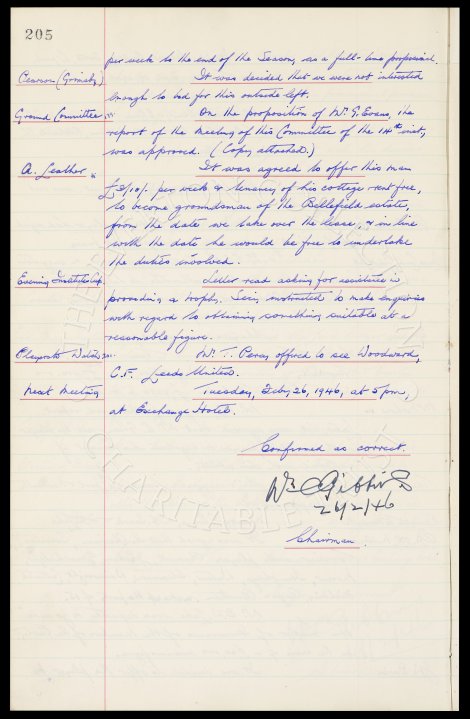 205
per week to the end of the Season, as a full-time professional.
Pearson (Grimsby) It was decided that we were not interested
enough to bid for this outside left.
Ground Committee On the proposition of Mr. G. Evans, the
report of the Meeting of this Committee of the 14th inst,
was approved. (Copy attached.)
A. Leather It was agreed to offer this man
£3/10/- per week & tenancy of his cottage rent free,
to become groundsman of the Bellefield estate,
from the date we take over the lease, & in line
with the date he would be free to undertake
the duties involved.
Evening Institutes Cup. Letter read asking for assistance in
providing a trophy. Secy. instructed to make enquiries
with regard to obtaining something suitable at a
reasonable figure.
Players to Watch Mr. T. Percy offered to see Woodward,
C.F. Leeds United.
Next Meeting Tuesday, Feby 26, 1946, at 5pm,
at Exchange Hotel.
Confirmed as correct.
Wm C Gibbins
26/2/46
Chairman.
CHARITABLE